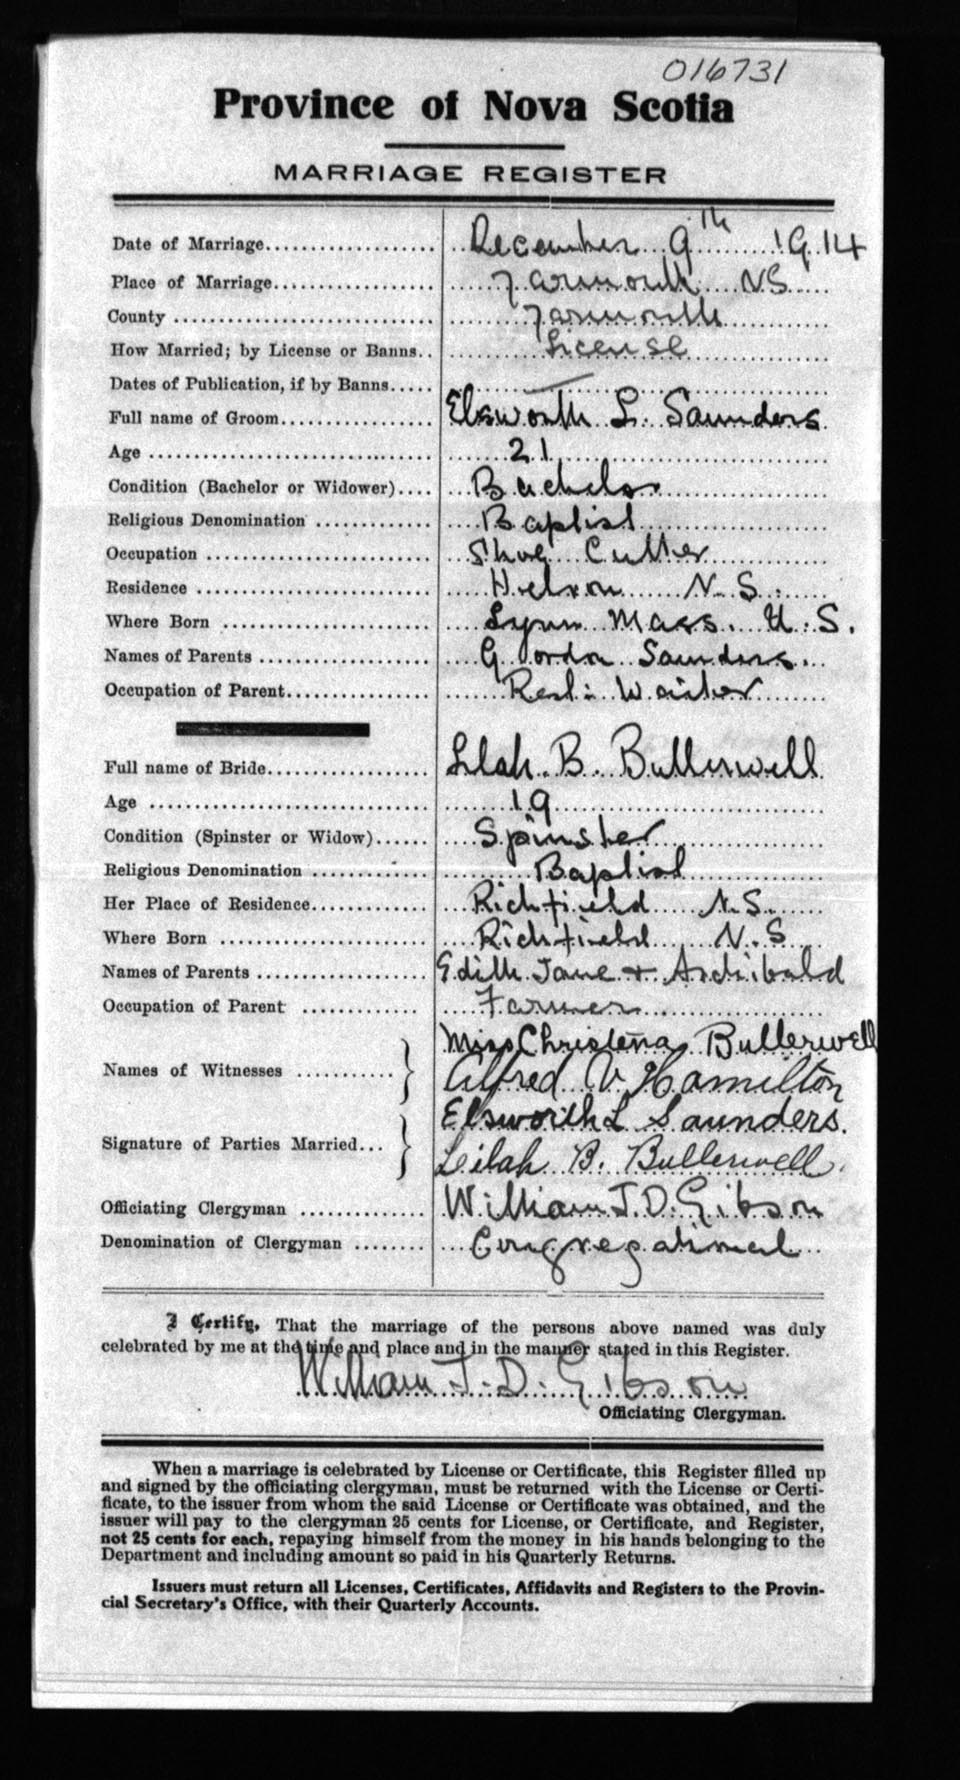 016731
Province of Nova Scotia
MARRIAGE REGISTER
Date of Marriage.................... December 9th 1914
Place of Marriage................... Yarmouth N.S.
County ............................... Yarmouth
How Married; by License or Banns.. License
Dates of Publication, if by Banns..... —
Full name of Groom.................. Elsworth L. Saunders
Age .................................. 21
Condition (Bachelor or Widower).... Bachelor
Religious Denomination .............. Baptist
Occupation ........................... Shoe Cutter
Residence ............................ N.S.
Where Born .......................... Lynn Mass. U.S.
Names of Parents ..................... Gordon Saunders.
Occupation of Parent................. Waiter
Full name of Bride................... B. Bullerwell
Age .................................. 19
Condition (Spinster or Widow)...... Spinster
Religious Denomination .............. Baptist
Her Place of Residence.............. Richfield N.S.
Where Born .......................... Richfield N.S
Names of Parents ..................... Edith Jane + Archibald
Occupation of Parent ................ Farmer
Miss Christena Bullerwell
Names of Witnesses ........... } Alfred V. Hamilton
Elsworth L Saunders.
Signature of Parties Married... } Leilah B. Bullerwell.
Officiating Clergyman ............... William J. D. Gibson
Denomination of Clergyman ........ Congregational
I Certify, That the marriage of the persons above named was duly
celebrated by me at the time and place and in the manner stated in this Register.
William J. D. Gibson
Officiating Clergyman.
When a marriage is celebrated by License or Certificate, this Register filled up
and signed by the officiating clergyman, must be returned with the License or Certi-
ficate, to the issuer from whom the said License or Certificate was obtained, and the
issuer will pay to the clergyman 25 cents for License, or Certificate, and Register,
not 25 cents for each, repaying himself from the money in his hands belonging to the
Department and including amount so paid in his Quarterly Returns.
Issuers must return all Licenses, Certificates, Affidavits and Registers to the Provin-
cial Secretary's Office, with their Quarterly Accounts.